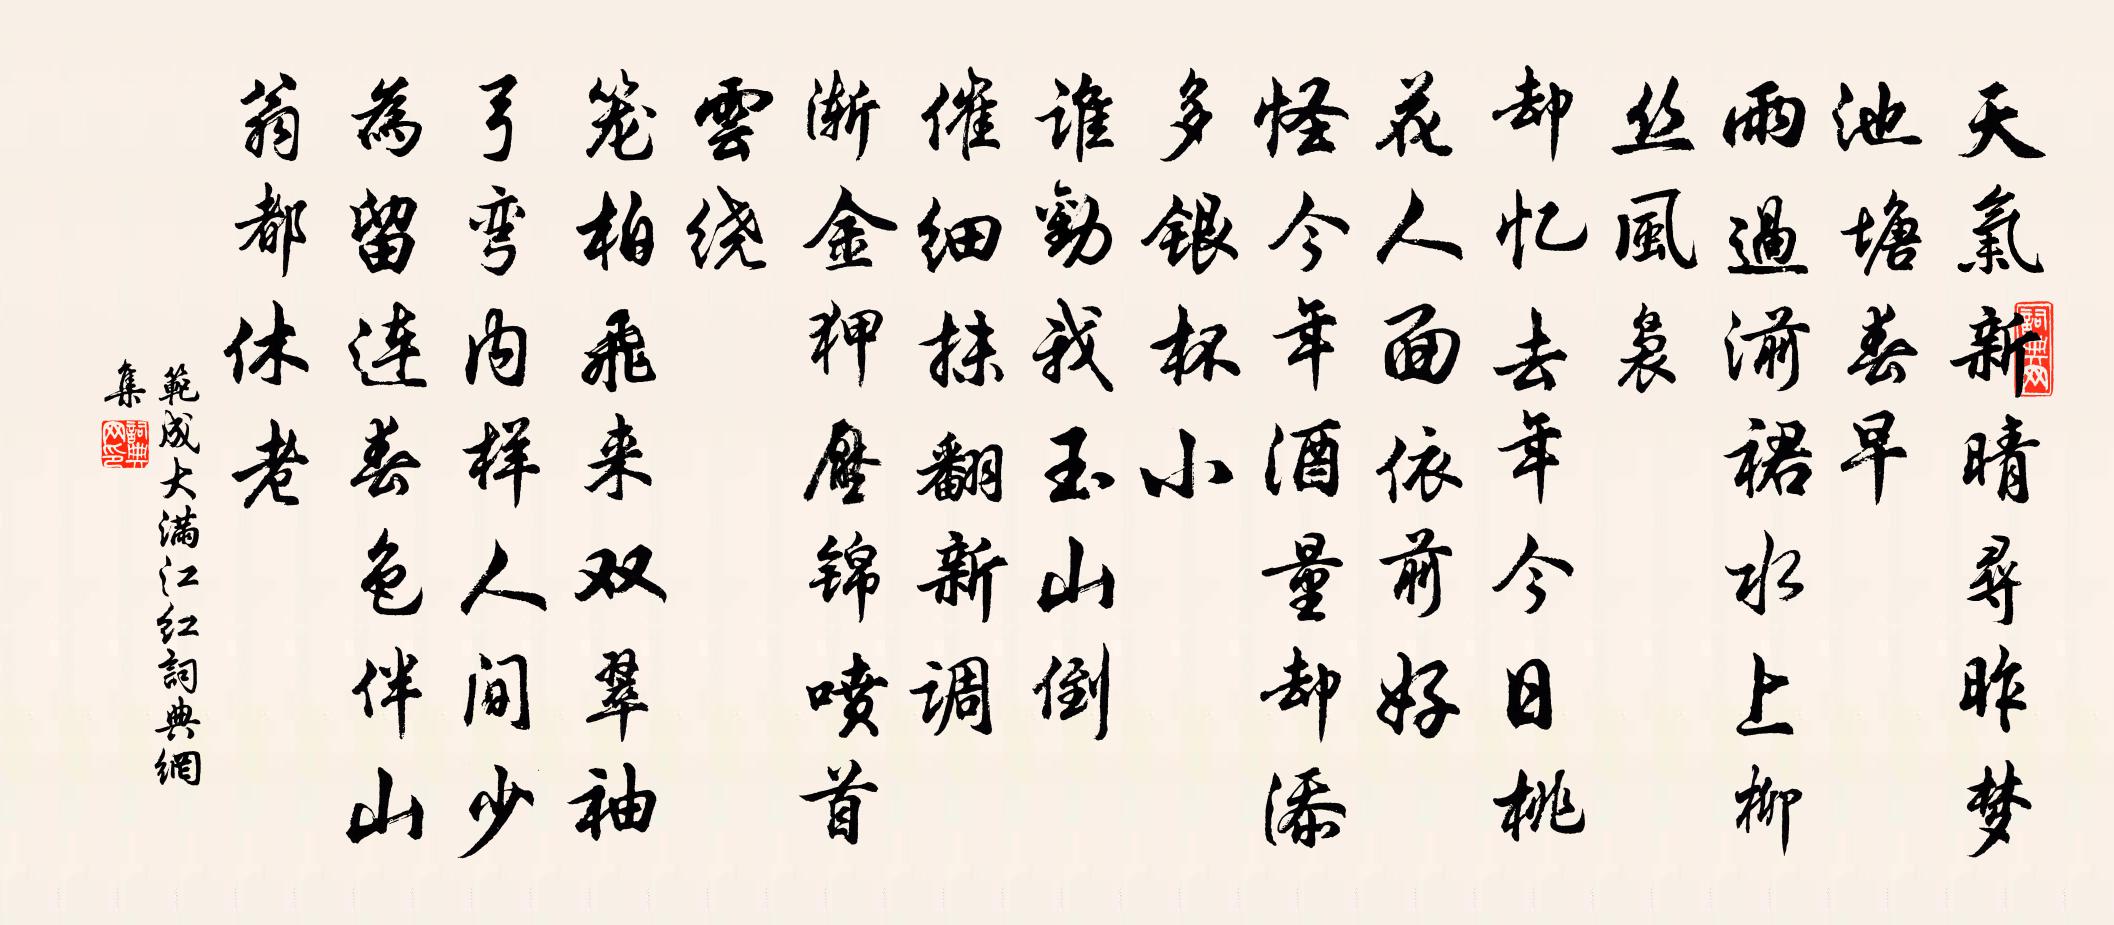 天氣新晴尋昨梦
池塘春早
雨過湔裙水上柳
丝風袅
却忆去年今日桃
花人面依前好
怪今年酒量却添
多银杯小
谁勸我玉山倒
催细抹翻新调
渐金狎壓锦喷首
雲绕
笼柏飛来双翠袖
弓弯内样人间少
為留连春色伴山
翁都休老
範成大満江红詞典網
集
詞典网
詞典网印